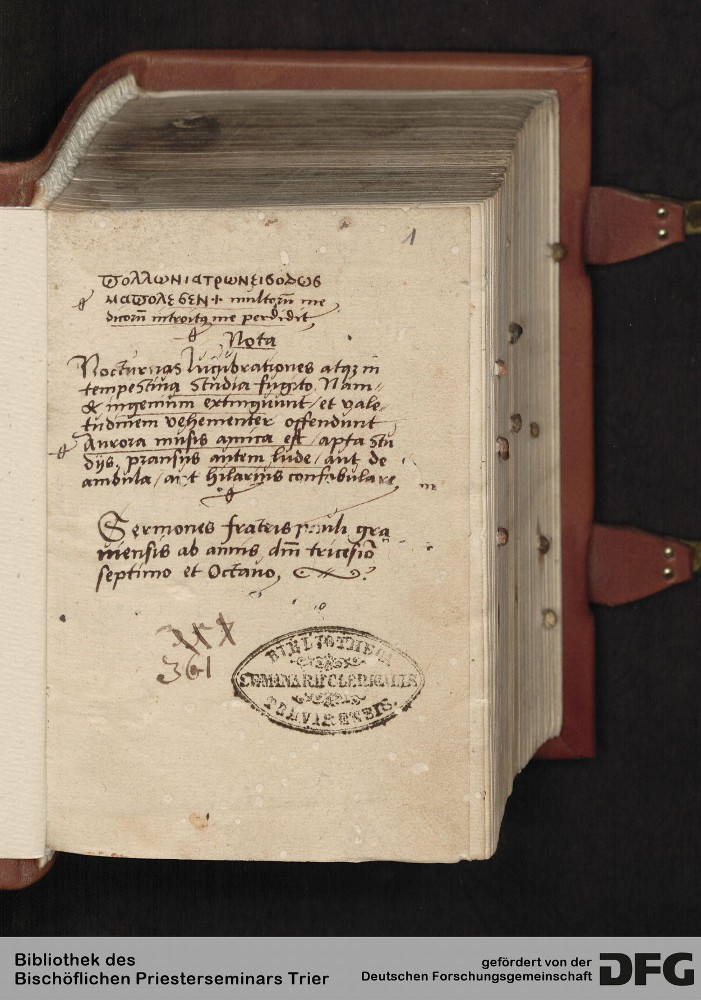 1
ΠΟΛΛΩΝΙΑΤΡΩΝΕΙΣΟΔΩΣ
ΜΑΠΟΛΕΣΕΝ + multorũ me
dicorũ introitꝫ me perdidit
Nota
Nocturnas lucubrationes atqꝫ in
tempestiua studia fugito. Nam
& ingenium extinguunt / et vale
tudinem vehementer offendunt
Aurora musis amica est / apta stu
dijs, pransus autem lude / aut de
ambula / aut hilarius confabulare
Sermones fratris pauli gra
uensis ab annis dñi tricesiõ
septimo et Octauo,
361
BIBLIOTHECA
SEMINARII CLERICALIS
TREVIRENSIS.
Bibliothek des
Bischöflichen Priesterseminars Trier
gefördert von der
Deutschen Forschungsgemeinschaft
DFG